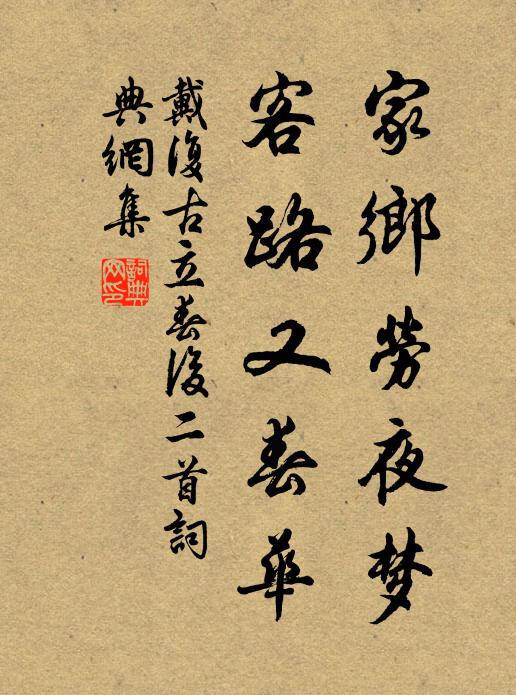 家鄉勞夜梦
客路又春華
戴復古立春後二首詞
典網集
詞典网印